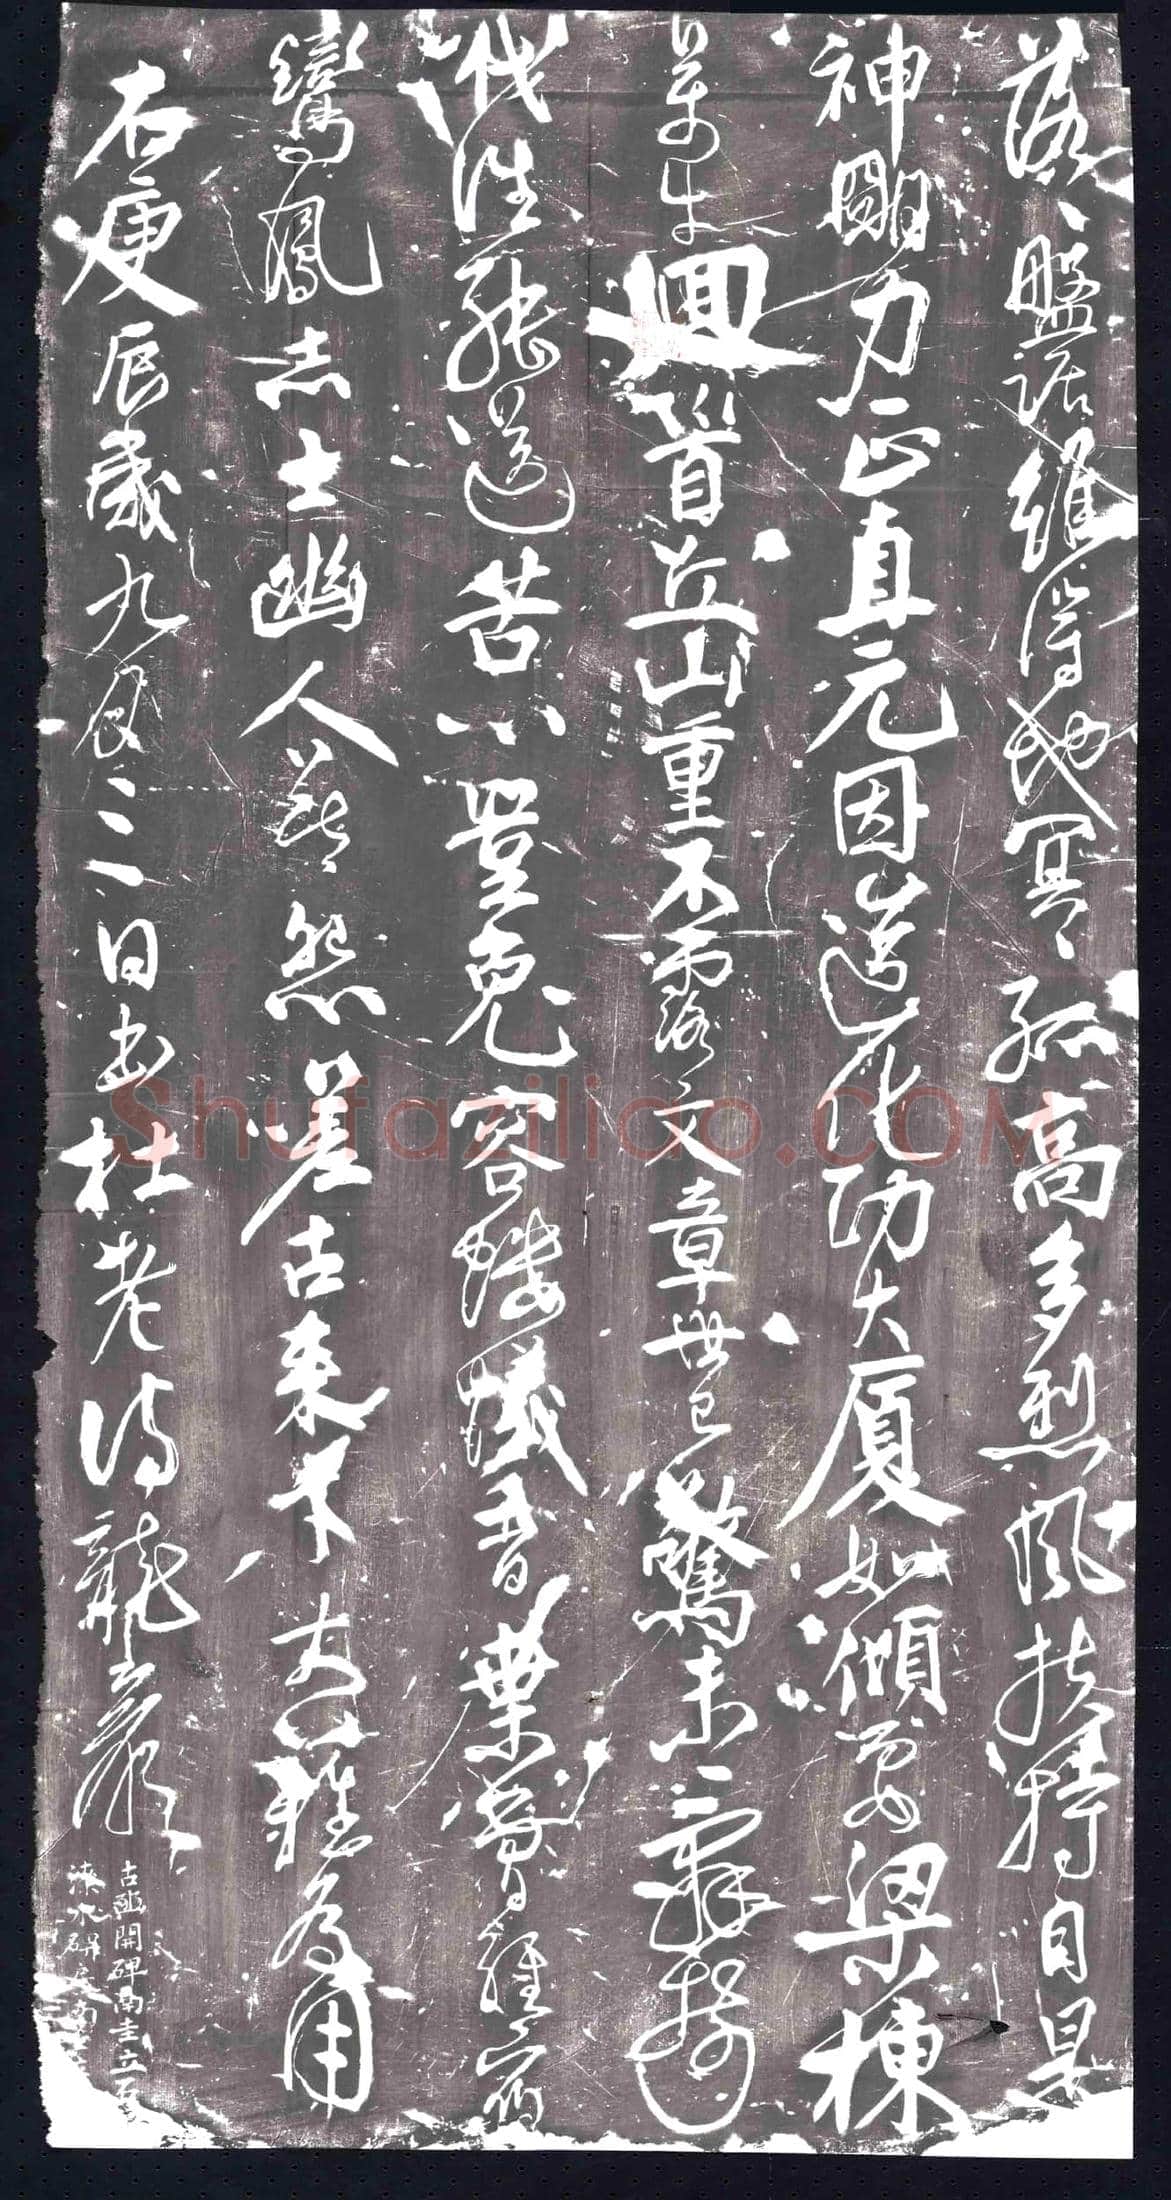 落〻盤踞雖得地冥〻孤高多烈風扶持自是
神明力正直元因造化功大廈如傾要梁棟
萬牛回首丘山重不露文章世已驚未辭剪
伐誰能送苦心豈免容螻蟻香葉曾經宿
鸞鳳志士幽人莫怨嗟古來才大難為用
右庚辰歲九月三日書杜老詩龍巖
古豳開碑南圭立石
Shufaziliao.COM